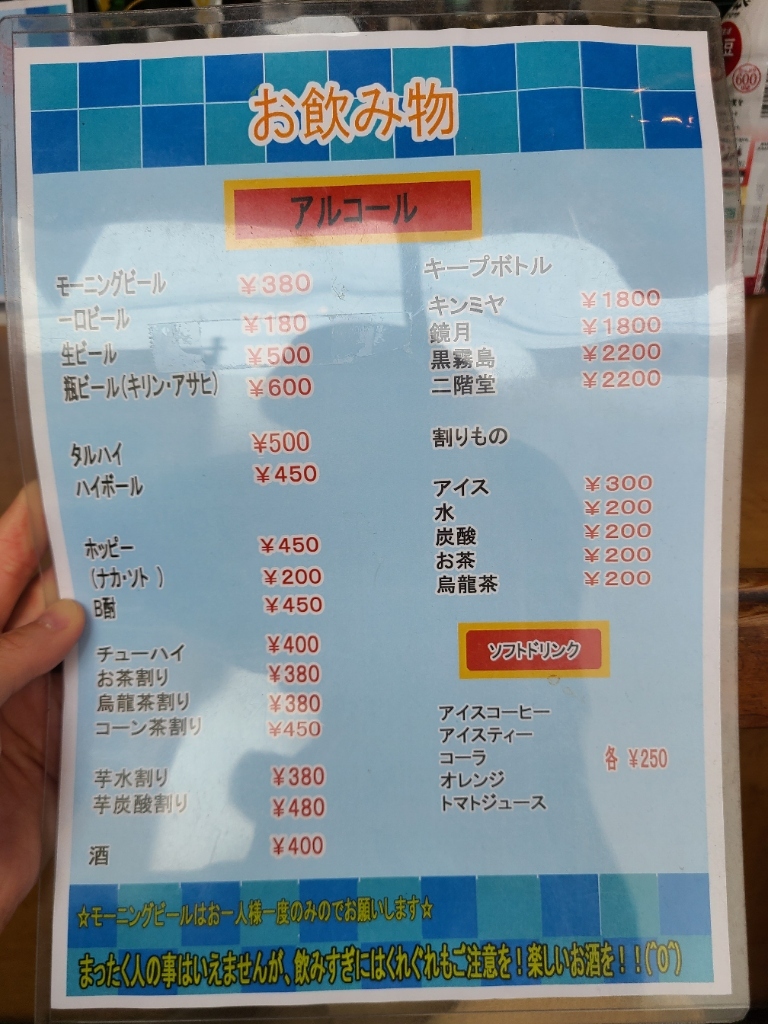 お飲み物
アルコール
モーニングビール ¥380
一口ビール ¥180
生ビール ¥500
瓶ビール(キリン・アサヒ) ¥600
タルハイ ¥500
ハイボール ¥450
ホッピー ¥450
(ナカ・ソト ) ¥200
B酎 ¥450
チューハイ ¥400
お茶割り ¥380
烏龍茶割り ¥380
コーン茶割り ¥450
芋水割り ¥380
芋炭酸割り ¥480
酒 ¥400
キープボトル
キンミヤ ¥1800
鏡月 ¥1800
黒霧島 ¥2200
二階堂 ¥2200
割りもの
アイス ¥300
水 ¥200
炭酸 ¥200
お茶 ¥200
烏龍茶 ¥200
ソフトドリンク
アイスコーヒー
アイスティー
コーラ 各 ¥250
オレンジ
トマトジュース
☆モーニングビールはお一人様一度のみのでお願いします☆
まったく人の事はいえませんが、飲みすぎにはくれぐれもご注意を！楽しいお酒を！！(^O^)
豆
600